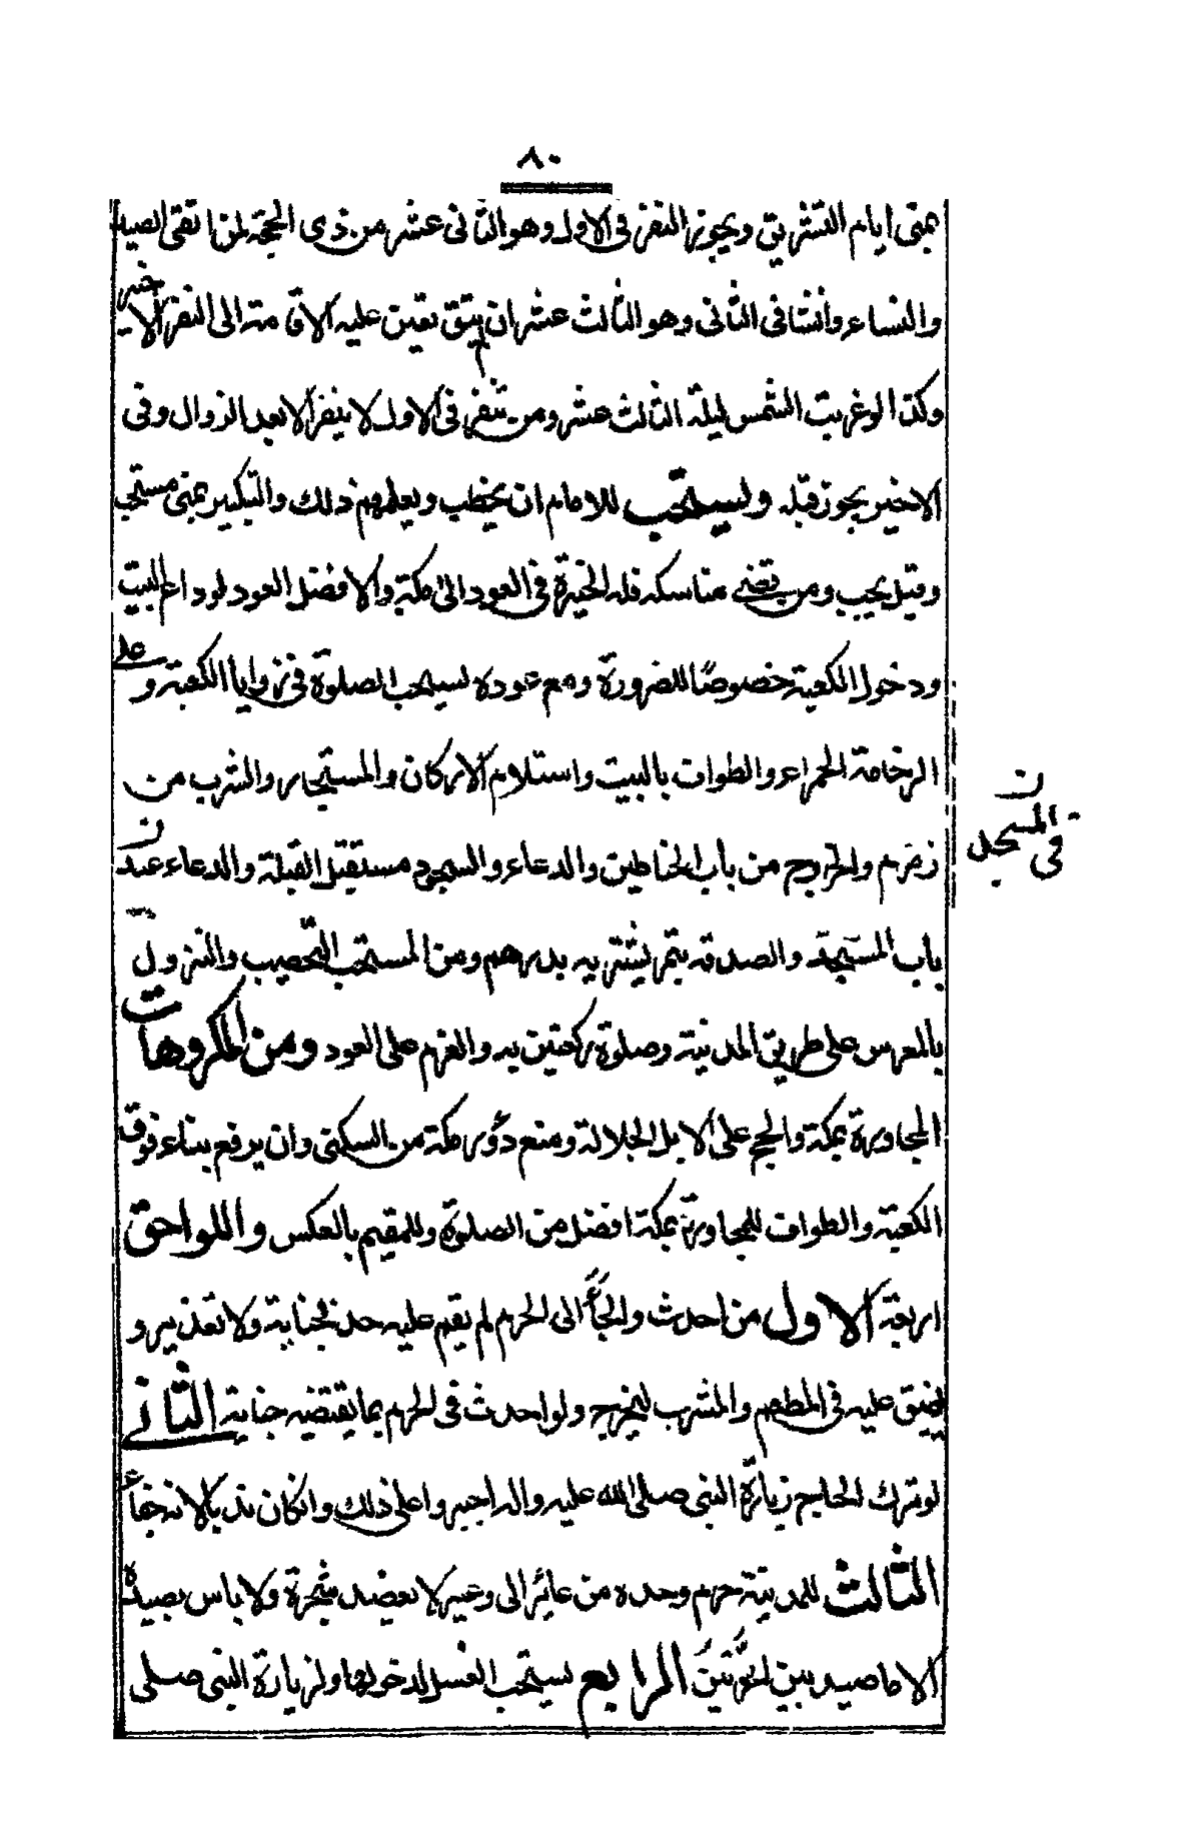 ٨٠
بمنى ايام التشريق ويجوز النفر فى الاول وهو الثانى عشر من ذى الحجة لمن اتقى الصيد
والنساء وانشا فى الثانى وهو الثالث عشر ان لم يتق تعين عليه الاقامة الى النفر الاخير
وكذا لو غربت الشمس ليلة الثالث عشر ومن ينفر فى الاول لا ينفر الا بعد الزوال وفى
الاخير يجوز قبله ويستحب للامام ان يخطب ويعلمهم ذلك والتكبير بمنى مستحب
وقيل يجب ومن قضى مناسكه فله الخيرة فى العود الى مكة والافضل العود لوداع البيت
ودخول الكعبة خصوصًا للضرورة ومع عوده يستحب الصلوة فى زوايا الكعبة وعلى
الرخامة الحمراء والطواف بالبيت واستلام الاركان والمستجار والشرب من
زمزم والخروج من باب الحناطين والدعاء والسجود مستقبل القبلة والدعاء عند
ن
فى المسجد
باب المسجد والصدقة بتمر يشتريه بدرهم ومن المستحب التحصيب والنزول
بالمعرس على طريق المدينة وصلوة ركعتين به والعزم على العود ومن المكروهات
المجاورة بمكة والحج على الابل الجلالة ومنع دؤر مكة من السكنى وان يرفع بناء فوق
الكعبة والطواف للمجاورة بمكة افضل من الصلوة وللمقيم بالعكس واللواحق
اربعة الاول من احدث ولجأ الى الحرم لم يقم عليه حد بجناية ولا تعذير و
يضيق عليه فى المطعم والمشرب ليخرج ولو احدث فى الحرم بما يقتضيه جناية الثانى
لو ترك الحاج زيارة النبى صلى الله عليه واله اجبروا على ذلك وان كان ندبا لانه جفاء
الثالث للمدينة حرم وحده من عائر الى وعير لا يعضد شجرة ولا باس بصيده
الا ما صيد بين الحرتين الرابع يستحب الغسل لدخولها ولزيارة النبى صلى